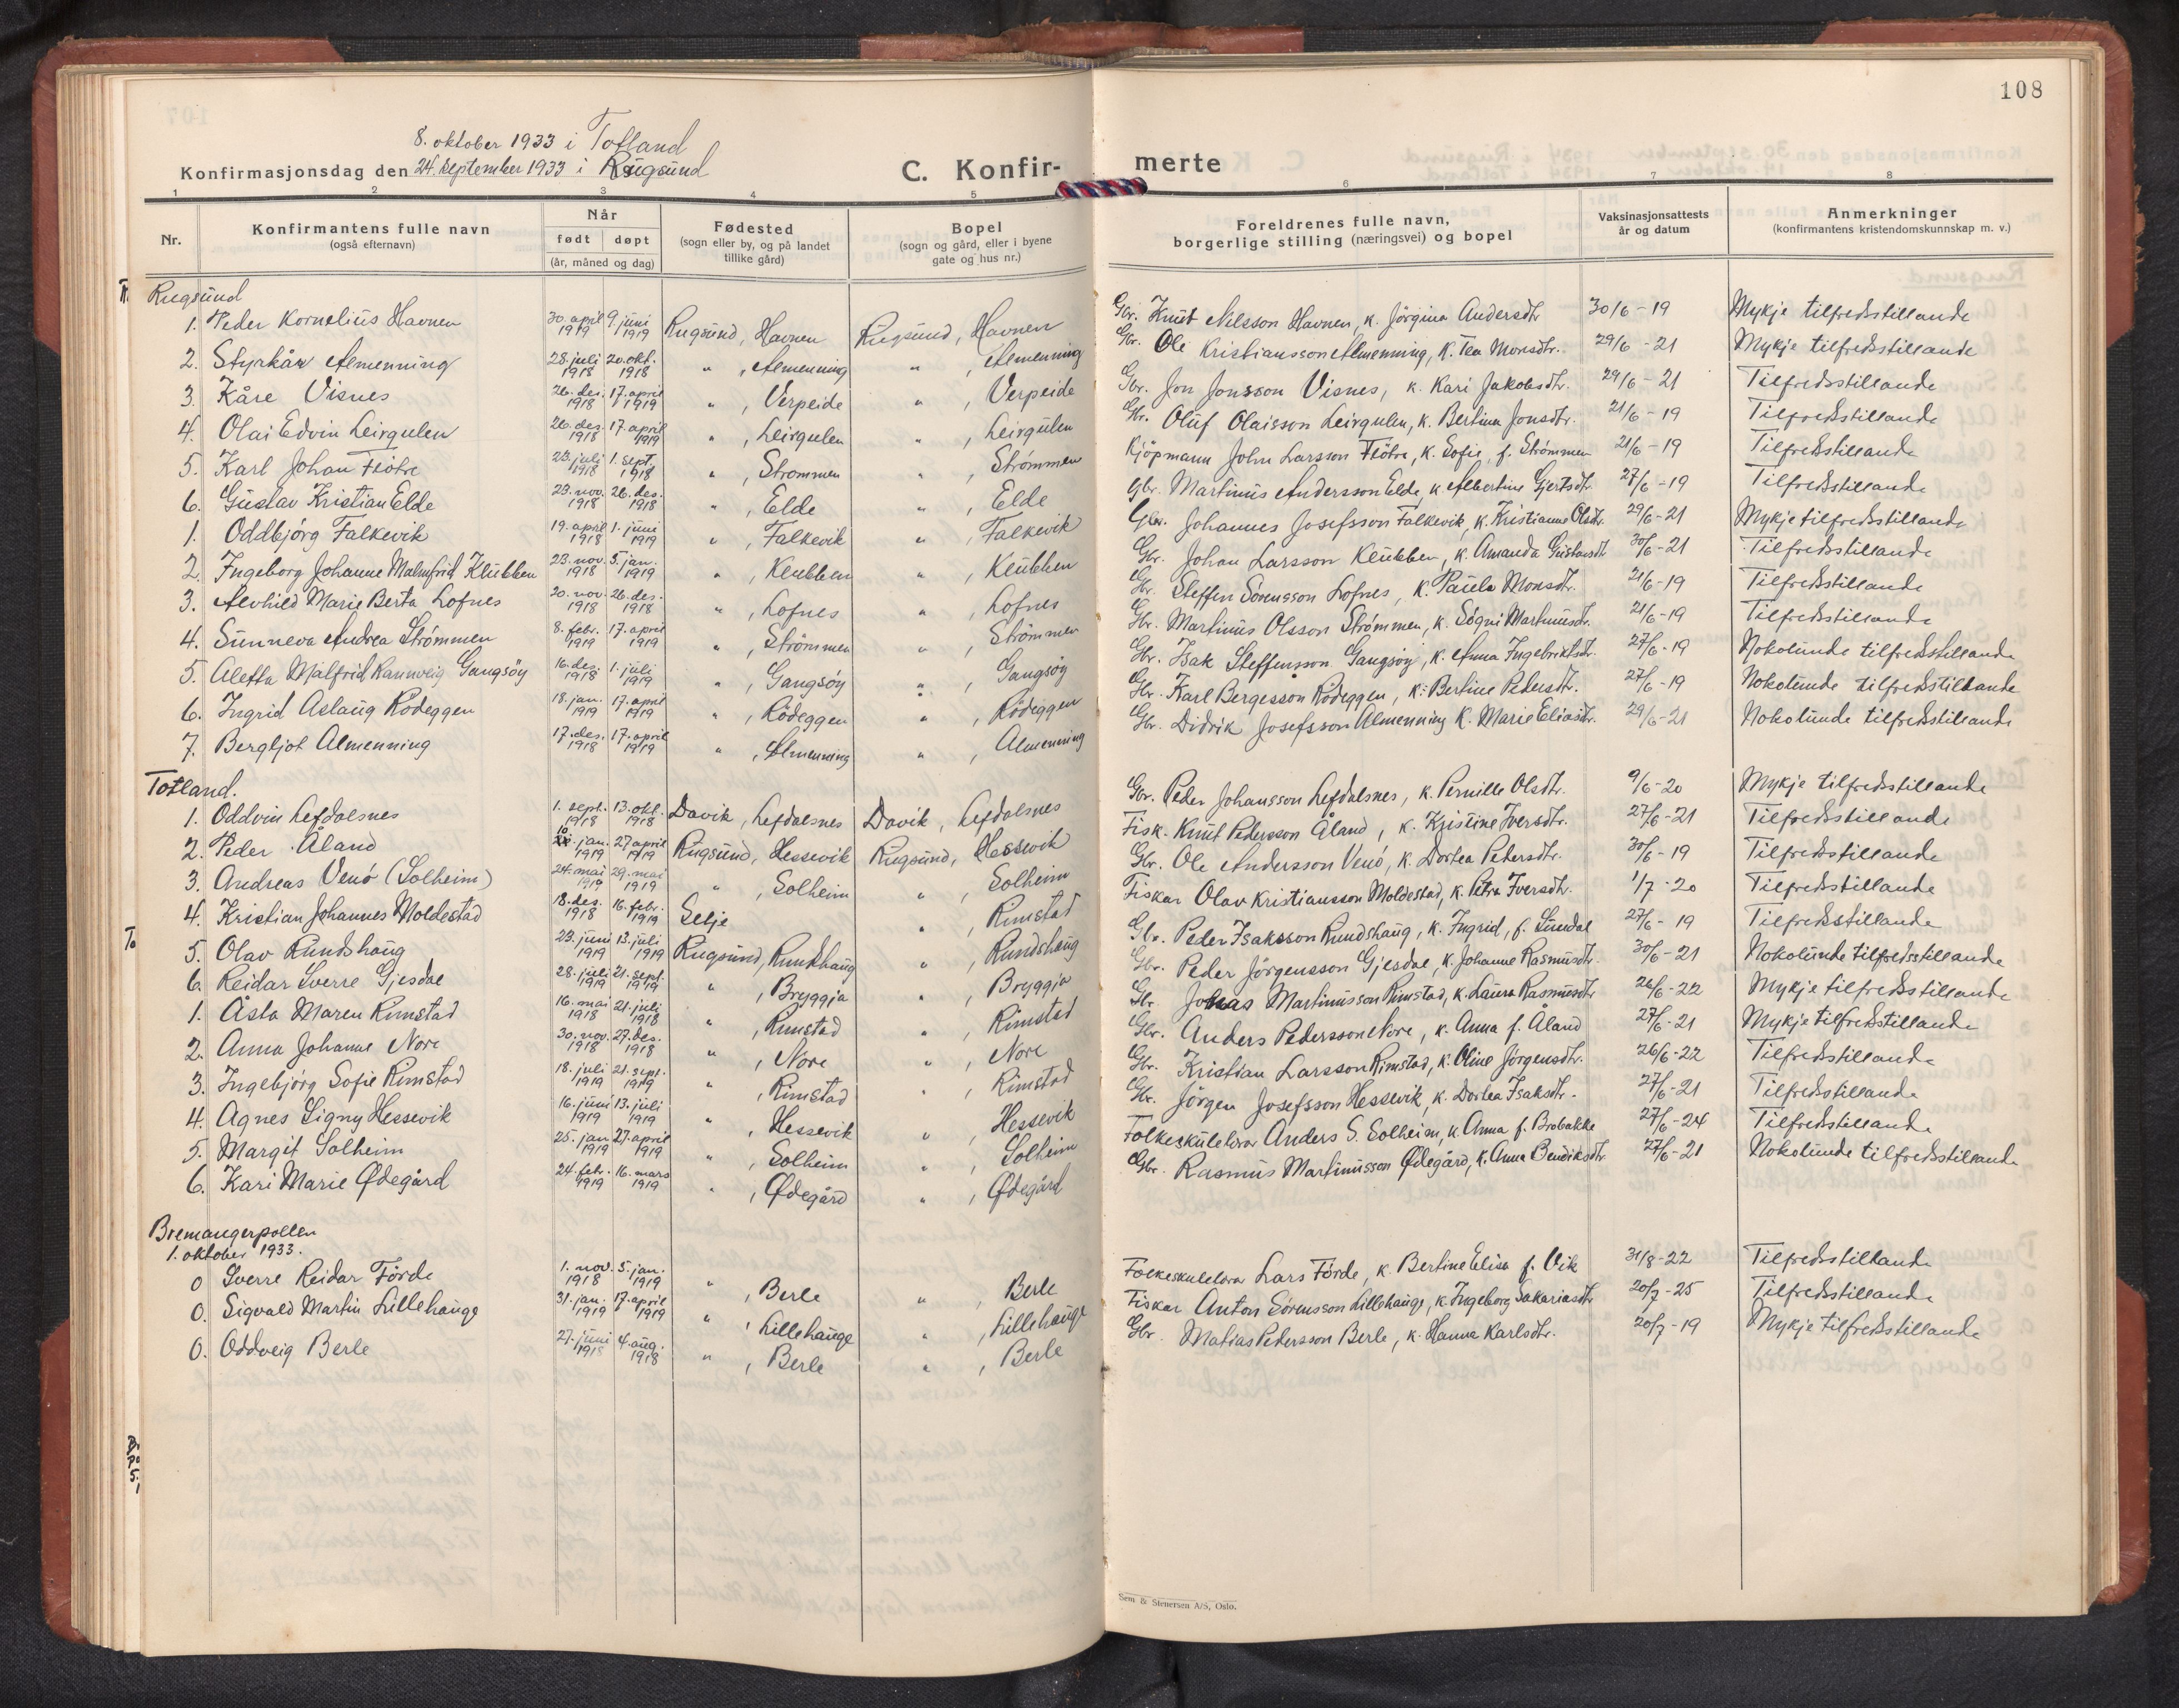 108
8. oktober 1933 i Totland
Konfirmasjonsdag den 24. september 1933 i Rugsund
C. Konfir-
merte
1 2 3 4 5 6 7 8
Nr.
Konfirmantens fulle navn
(også efternavn)
Når
født døpt
(år, måned og dag)
Fødested
(sogn eller by, og på landet
tillike gård)
Bopel
(sogn og gård, eller i byene
gate og hus nr.)
Foreldrenes fulle navn,
borgerlige stilling (næringsvei) og bopel
Vaksinasjonsattests
år og datum
Anmerkninger
(konfirmantens kristendomskunnskap m. v.)
Rugsund
1. Peder Kornelius Havnen 30. april 1919 9. juni 1919 Rugsund, Havnen Rugsund, Havnen Gbr. Knut Nilsson Havnen, k. Jörgina Andersdtr. 30/6-19 Mykje tilfredsstillande
2. Styrkår Almenning 28. juli 1918 20. okt. 1918 " , Almenning " , Almenning Gbr. Ole Kristiansson Almenning, k. Tea Monsdtr. 29/6-21 Mykje tilfredsstillande
3. Kåre Visnes 26. des. 1918 17. april 1919 " , Verpeide " , Verpeide Gbr. Jon Jonsson Visnes, k. Kari Jakobsdtr. 29/6-21 Tilfredsstillande
4. Olai Edvin Leirgulen 26. des. 1918 17. april 1919 " , Leirgulen " , Leirgulen Gbr. Oluf Olaisson Leirgulen, k. Bertina Jonsdtr. 21/6-19 Tilfredsstillande
5. Karl Johan Flötre 23. juli 1918 1. sept. 1918 " , Strømmen " , Strömmen Kjöpmann John Larsson Flötre, k. Sofie, f. Strømmen 21/6-19 Tilfredsstillande
6. Gustav Kristian Elde 23. nov. 1918 26. des. 1918 " , Elde " , Elde Gbr. Martinus Andersson Elde, k. Albertine Gjertsdtr. 27/6-19 Tilfredsstillande
1. Oddbjörg Falkevik 19. april 1918 1. juni 1919 " , Falkevik " , Falkevik Gbr. Johannes Josefsson Falkevik, k. Kristianne Olsdtr. 29/6-21 Mykje tilfredsstillande
2. Ingeborg Johanne Malmfrid Klubben 23. nov. 1918 5. jan. 1919 " , Klubben " , Klubben Gbr. Johan Larsson Klubben, k. Amanda Gustavsdtr. 30/6-21 Tilfredsstillande
3. Alvhild Marie Berta Lofnes 20. nov. 1918 26. des. 1918 " , Lofnes " , Lofnes Gbr. Steffen Sörensson Lofnes, k. Paula Monsdtr. 21/6-19 Tilfredsstillande
4. Sunneva Andrea Strömmen 8. febr. 1919 17. april 1919 " , Strömmen " , Strömmen Gbr. Martinus Olsson Strömmen, k. Sögni Martinusdtr. 21/6-19 Tilfredsstillande
5. Aletta Malfrid Rannveig Gangsöy 16. des. 1918 1. juli 1919 " , Gangsöy " , Gangsöy Gbr. Isak Steffensson Gangsöy, k. Anna Ingebriktsdtr. 27/6-19 Nokolunde tilfredsstillande
6. Ingrid Aslaug Rödeggen 18. jan. 1919 17. april 1919 " , Rödeggen " , Rödeggen Gbr. Karl Bergesson Rödeggen, k. Bertine Pedersdtr. 27/6-19 Nokolunde tilfredsstillande
7. Bergljot Almenning 17. des. 1918 17. april 1919 " , Almenning " , Almenning Gbr. Didrik Josefsson Almenning k. Marie Eliasdtr. 29/6-21 Nokolunde tilfredsstillande
Totland.
1. Oddvin Lefdalsnes 1. sept. 1918 13. okt. 1918 Davik, Lefdalsnes Davik, Lefdalsnes Gbr. Peder Johansson Lefdalsnes, k. Pernille Olsdtr. 9/6-20 Mykje tilfredsstillande
2. Peder Åland 10. jan. 1919 27. april 1919 Rugsund, Hessevik Rugsund, Hessevik Fisk. Knut Pedersson Åland, k. Kristine Iversdtr. 27/6-21 Tilfredsstillande
3. Andreas Venö (Solheim) 24. mai 1919 29. mai 1919 " , Solheim " , Solheim Gbr. Ole Andersson Venö, k. Dortea Petersdtr. 30/6-19 Tilfredsstillande
4. Kristian Johannes Moldestad 18. des. 1918 16. febr. 1919 Selje " , Rimstad Fiskar Olav Kristiansson Moldestad, k. Petra Iversdtr. 1/7-20 Tilfredsstillande
5. Olav Rundshaug 23. juni 1919 13. juli 1919 Rugsund, Rundshaug " , Rundshaug Gbr. Peder Isaksson Rundshaug, k. Ingrid, f. Sundal 27/6-19 Tilfredsstillande
6. Reidar Sverre Gjesdal 28. juli 1919 21. sept. 1919 " , Bryggja " , Bryggja Gbr. Peder Jörgensson Gjesdal, k. Johanne Rasmusdtr. 30/6-21 Nokolunde tilfredsstillande
1. Åsta Maren Rimstad 16. mai 1918 21. juli 1918 " , Rimstad " , Rimstad Gbr. Johas Martinusson Rimstad, k. Laura Rasmusdtr. 26/6-22 Mykje tilfredsstillande
2. Anna Johanne Nore 30. nov. 1918 27. des. 1918 " , Nore " , Nore Gbr. Anders Pedersson Nore, k. Anna f. Åland 27/6-21 Mykje tilfredsstillande
3. Ingebjörg Sofie Rimstad 18. juli 1919 21. sept. 1919 " , Rimstad " , Rimstad Gbr. Kristian Larsson Rimstad, k. Oline Jörgensdtr. 26/6-22 Tilfredsstillande
4. Agnes Signy Hessevik 16. juni 1919 13. juli 1919 " , Hessevik " , Hessevik Gbr. Jörgen Josefsson Hessevik, k. Dortea Isaksdtr. 27/6-21 Tilfredsstillande
5. Margit Solheim 25. jan. 1919 27. april 1919 " , Solheim " , Solheim Folkeskulelærar Anders S. Solheim, k. Anna f. Brobakke 27/6-24 Tilfredsstillande
6. Kari Marie Ødegård 24. febr. 1919 16. mars 1919 " , Ødegård " , Ødegård Gbr. Rasmus Martinusson Ødegård, k. Anna Bendiksdtr. 27/6-21 Nokolunde tilfredsstillande
Bremangerpollen
1. oktober 1933.
0 Sverre Reidar Förde 1. nov. 1918 5. jan. 1919 " , Berle " , Berle Folkeskulelærar Lars Förde, k. Bertine Elisa f. Vik 31/8-22 Tilfredsstillande
0. Sigvald Martin Lillehauge 31. jan. 1919 17. april 1919 " , Lillehauge " , Lillehauge Fiskar Anton Sörensson Lillehauge, k. Ingeborg Sakariasdtr. 20/7-25 Tilfredsstillande
0. Oddveig Berle 27. juni 1918 4. aug. 1918 " , Berle " , Berle Gbr. Matias Pedersson Berle, k. Hanna Karlsdtr. 20/7-19 Mykje tilfredsstillande
Sem & Stenersen A/S, Oslo.